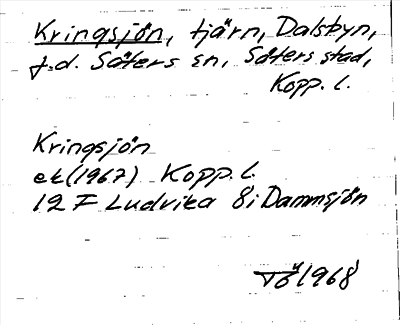 Kringsjön, tjärn, Dalsbyn,
f.d. Säters sn, Säters stad,
Kopp. l.
Kringsjön
ek (1967) Kopp. l.
12 F Ludvika 8i Dammsjön
Tö 1968